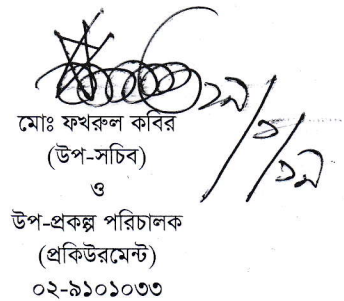 ১৯/১/১৯
মোঃ ফখরুল কবির
(উপ-সচিব)
ও
উপ-প্রকল্প পরিচালক
(প্রকিউরমেন্ট)
০২-৯১০১০৩৩